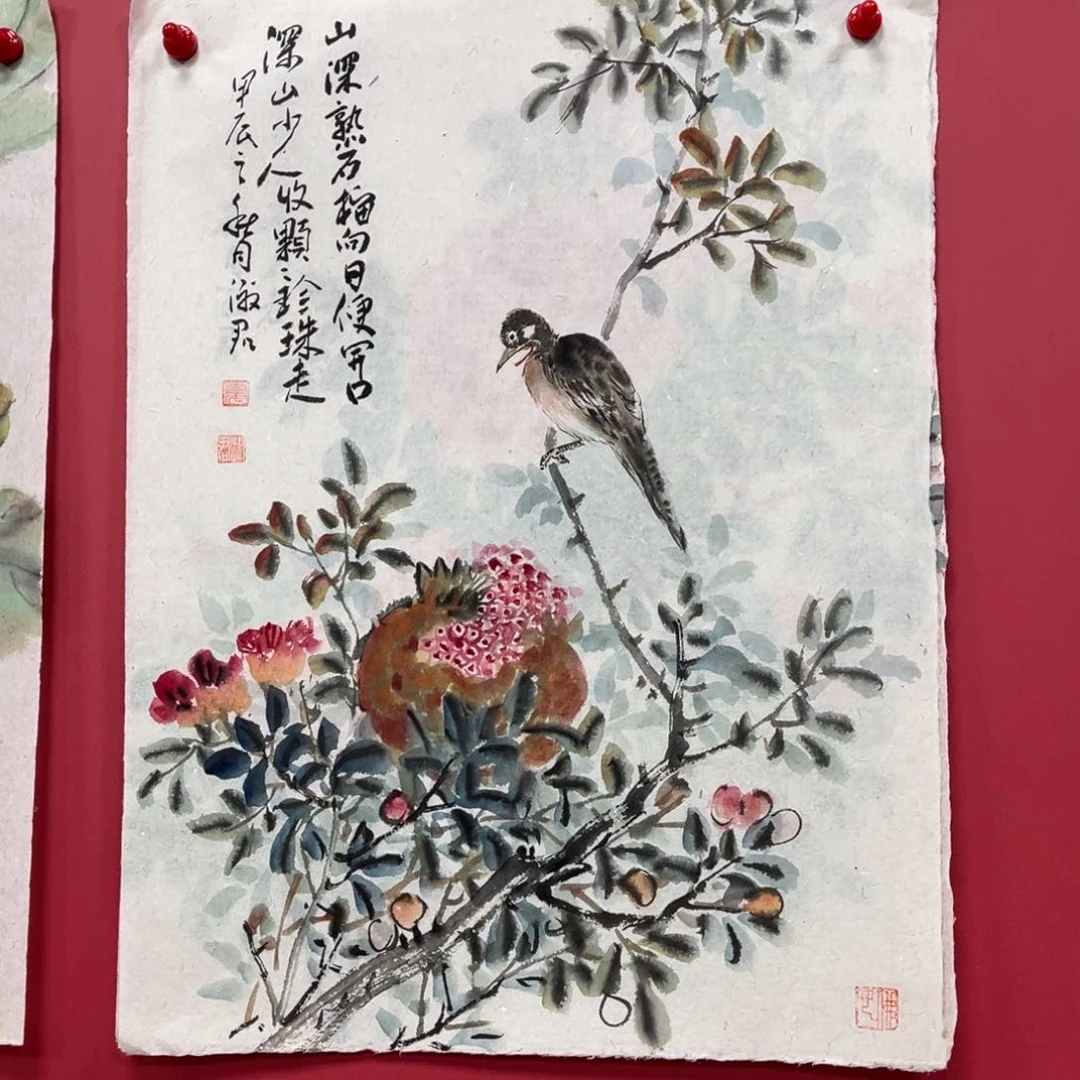 山深熟石榴向日便開口
深山少人收顆〻珍珠走
甲辰之秋月淑君